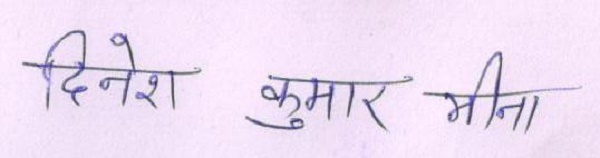 दिनेश कुमार मीना